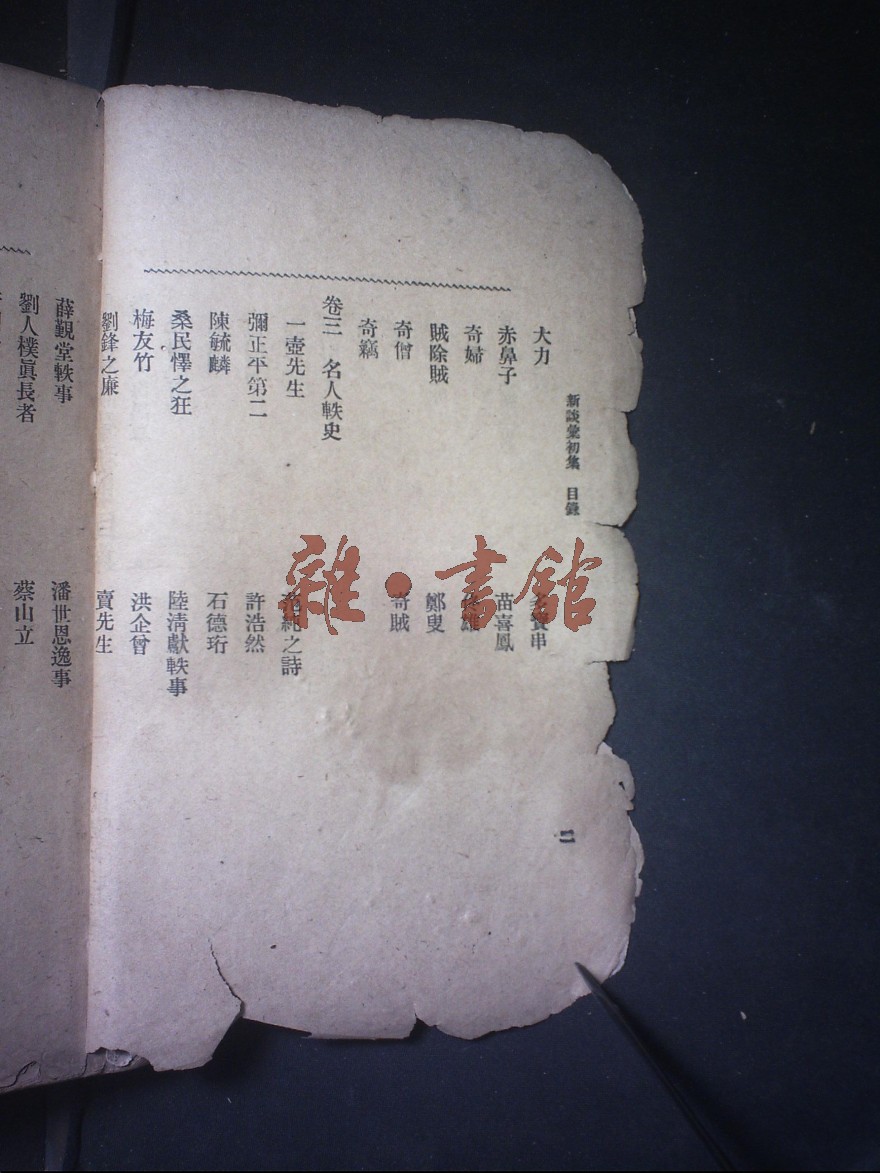 新談彙初集 目錄
二
大力
赤鼻子
苗喜鳳
奇婦
賊除賊
鄭叟
奇僧
奇賊
奇竊
卷三 名人軼史
一壺先生
之詩
彌正平第二
許浩然
陳毓麟
石德珩
桑民懌之狂
陸清獻軼事
梅友竹
洪企曾
劉鋒之廉
賣先生
薛覲堂軼事
潘世恩逸事
劉人樸眞長者
蔡山立
雜·書館